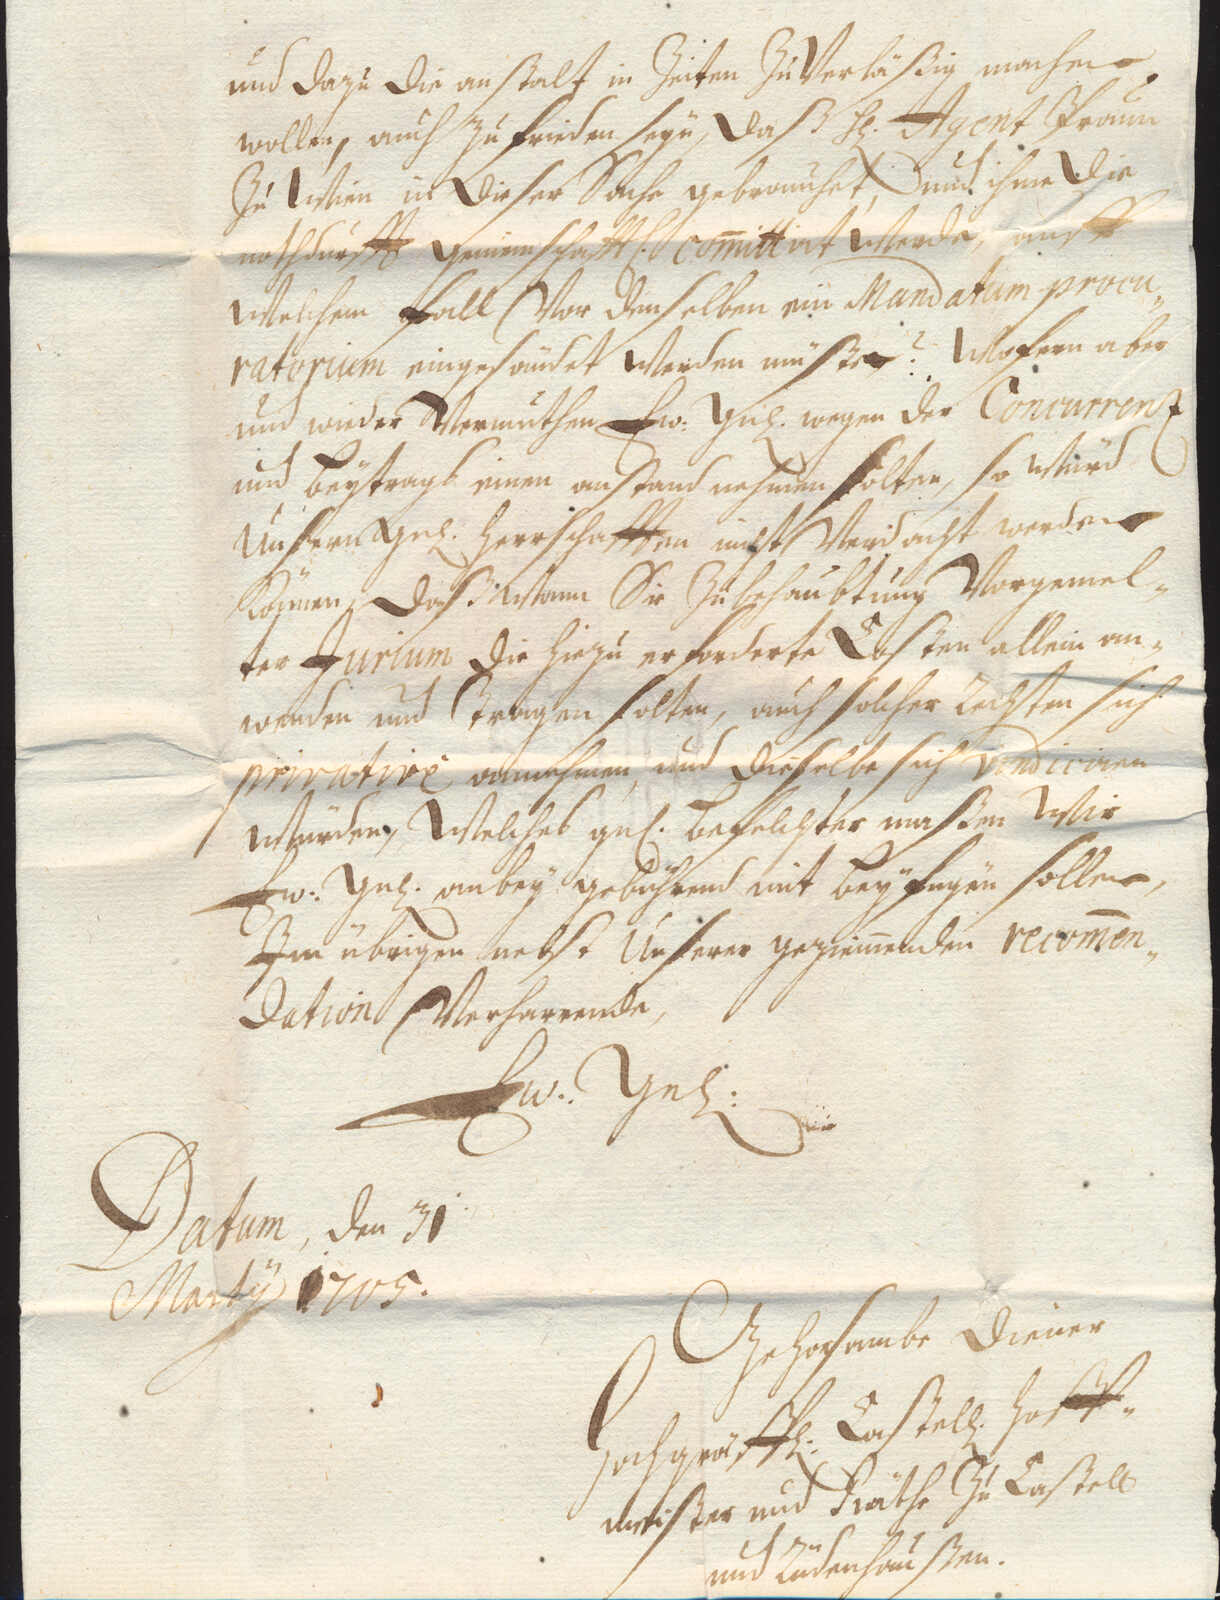 und dazu die anstalt in Zeiten zuverläßig machen
wollen, auch zu frieden seyn, daß H. Agent Praun
zu Wien in dieser Sache gebrauchet, und ihme die
nothdurfft gemeinschafftl. com̅ittirt werde, auff
welchem fall von denselben ein Mandatum procu-
ratorium eingesendet werden müste? Wofern aber
und wieder Vermuthen Ew. Gnd. wegen der Concurrenz
und beytrags einen anstand nehmen solten, so würd
Unsern gnd. Herrschafften nicht verdacht werden
können, daß wann Sie zu behaubtung vorgemel-
ter Jurium die hiezu erforderte Costen allein an-
wenden und tragen solten, auch solcher sich
privative annehmen, und dieselbe sich vindiciren
würden, Welches gnd. befelchter maßen Wir
Ew. Gnd. anbey gebührend mit beyfügen sollen,
Im übrigen nebst Unserer geziemenden recom̅en-
dation Verharrende,
Ew. Gnd.
Datum, den 31
Martÿ 1705.
Gehorsambe Diener
Hochgräffl. Castell. Hoff-
meister und Räthe zu Castell
und Rüdenhaußen.